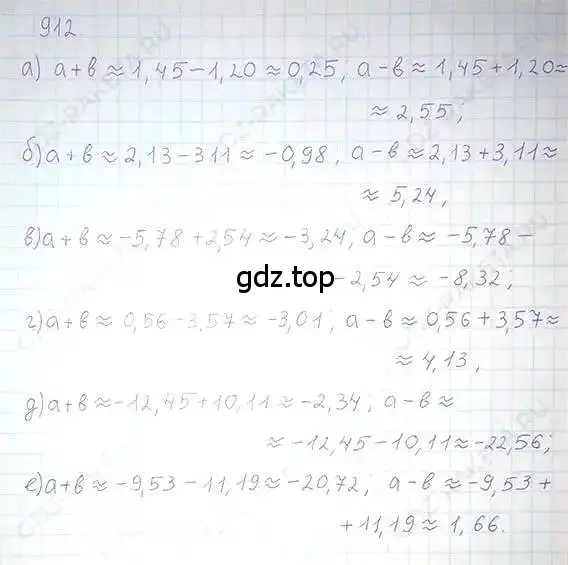 912
а) а+в ≈ 1,45−1,20 ≈ 0,25, а−в ≈ 1,45+1,20≈
≈ 2,55;
б) а+в ≈ 2,13−311 ≈ −0,98, а−в ≈ 2,13+3,11≈
≈ 5,24,
в) а+в ≈ −5,78+2,54 ≈ −3,24; а−в ≈ −5,78−
−2,54 ≈ −8,32;
gdz.top
г) а+в ≈ 0,56−3,57 ≈ −3,01; а−в ≈ 0,56+3,57≈
≈ 4,13,
д) а+в ≈ −12,45+10,11 ≈ −2,34; а−в ≈
≈ −12,45−10,11 ≈ −22,56;
е) а+в ≈ −9,53−11,19 ≈ −20,72; а−в ≈ −9,53+
+11,19 ≈ 1,66.